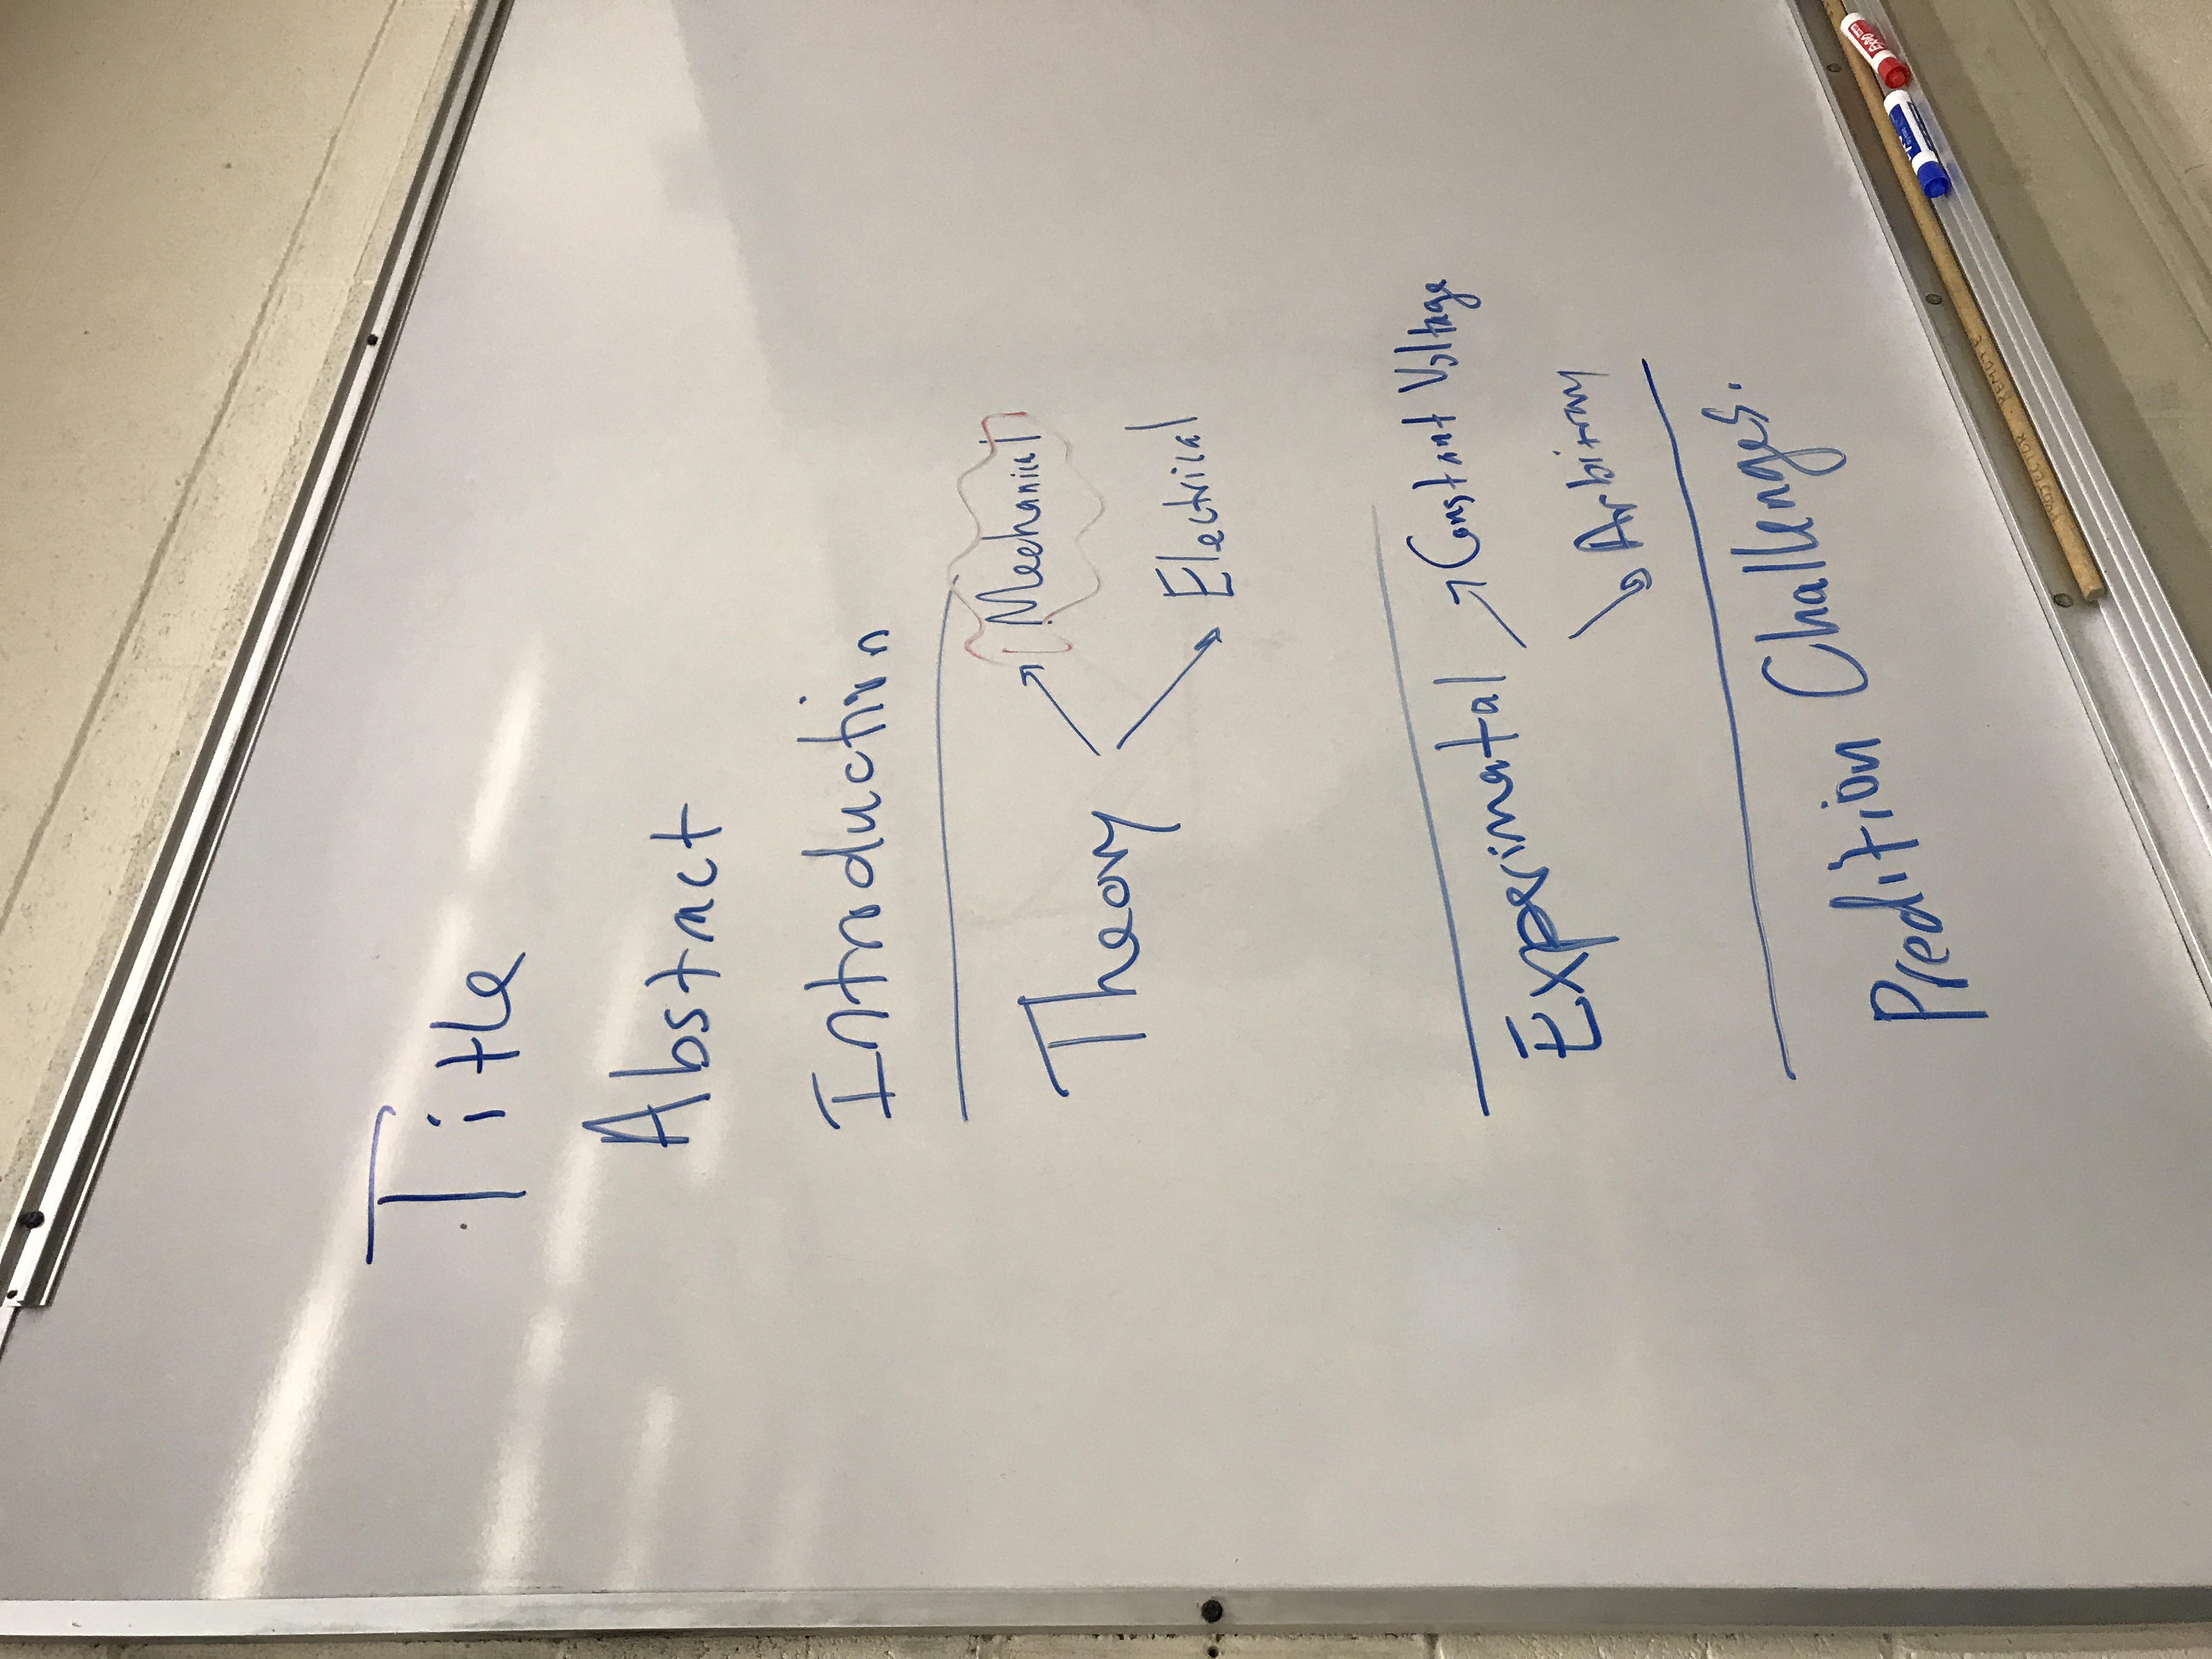 Title
Abstract
Introduction
Theory
Mechanical
Electrical
Experimatal
Constant Voltage
Arbitrary
Predition Challenges.
PROJECTOR REMOTE
EXPO